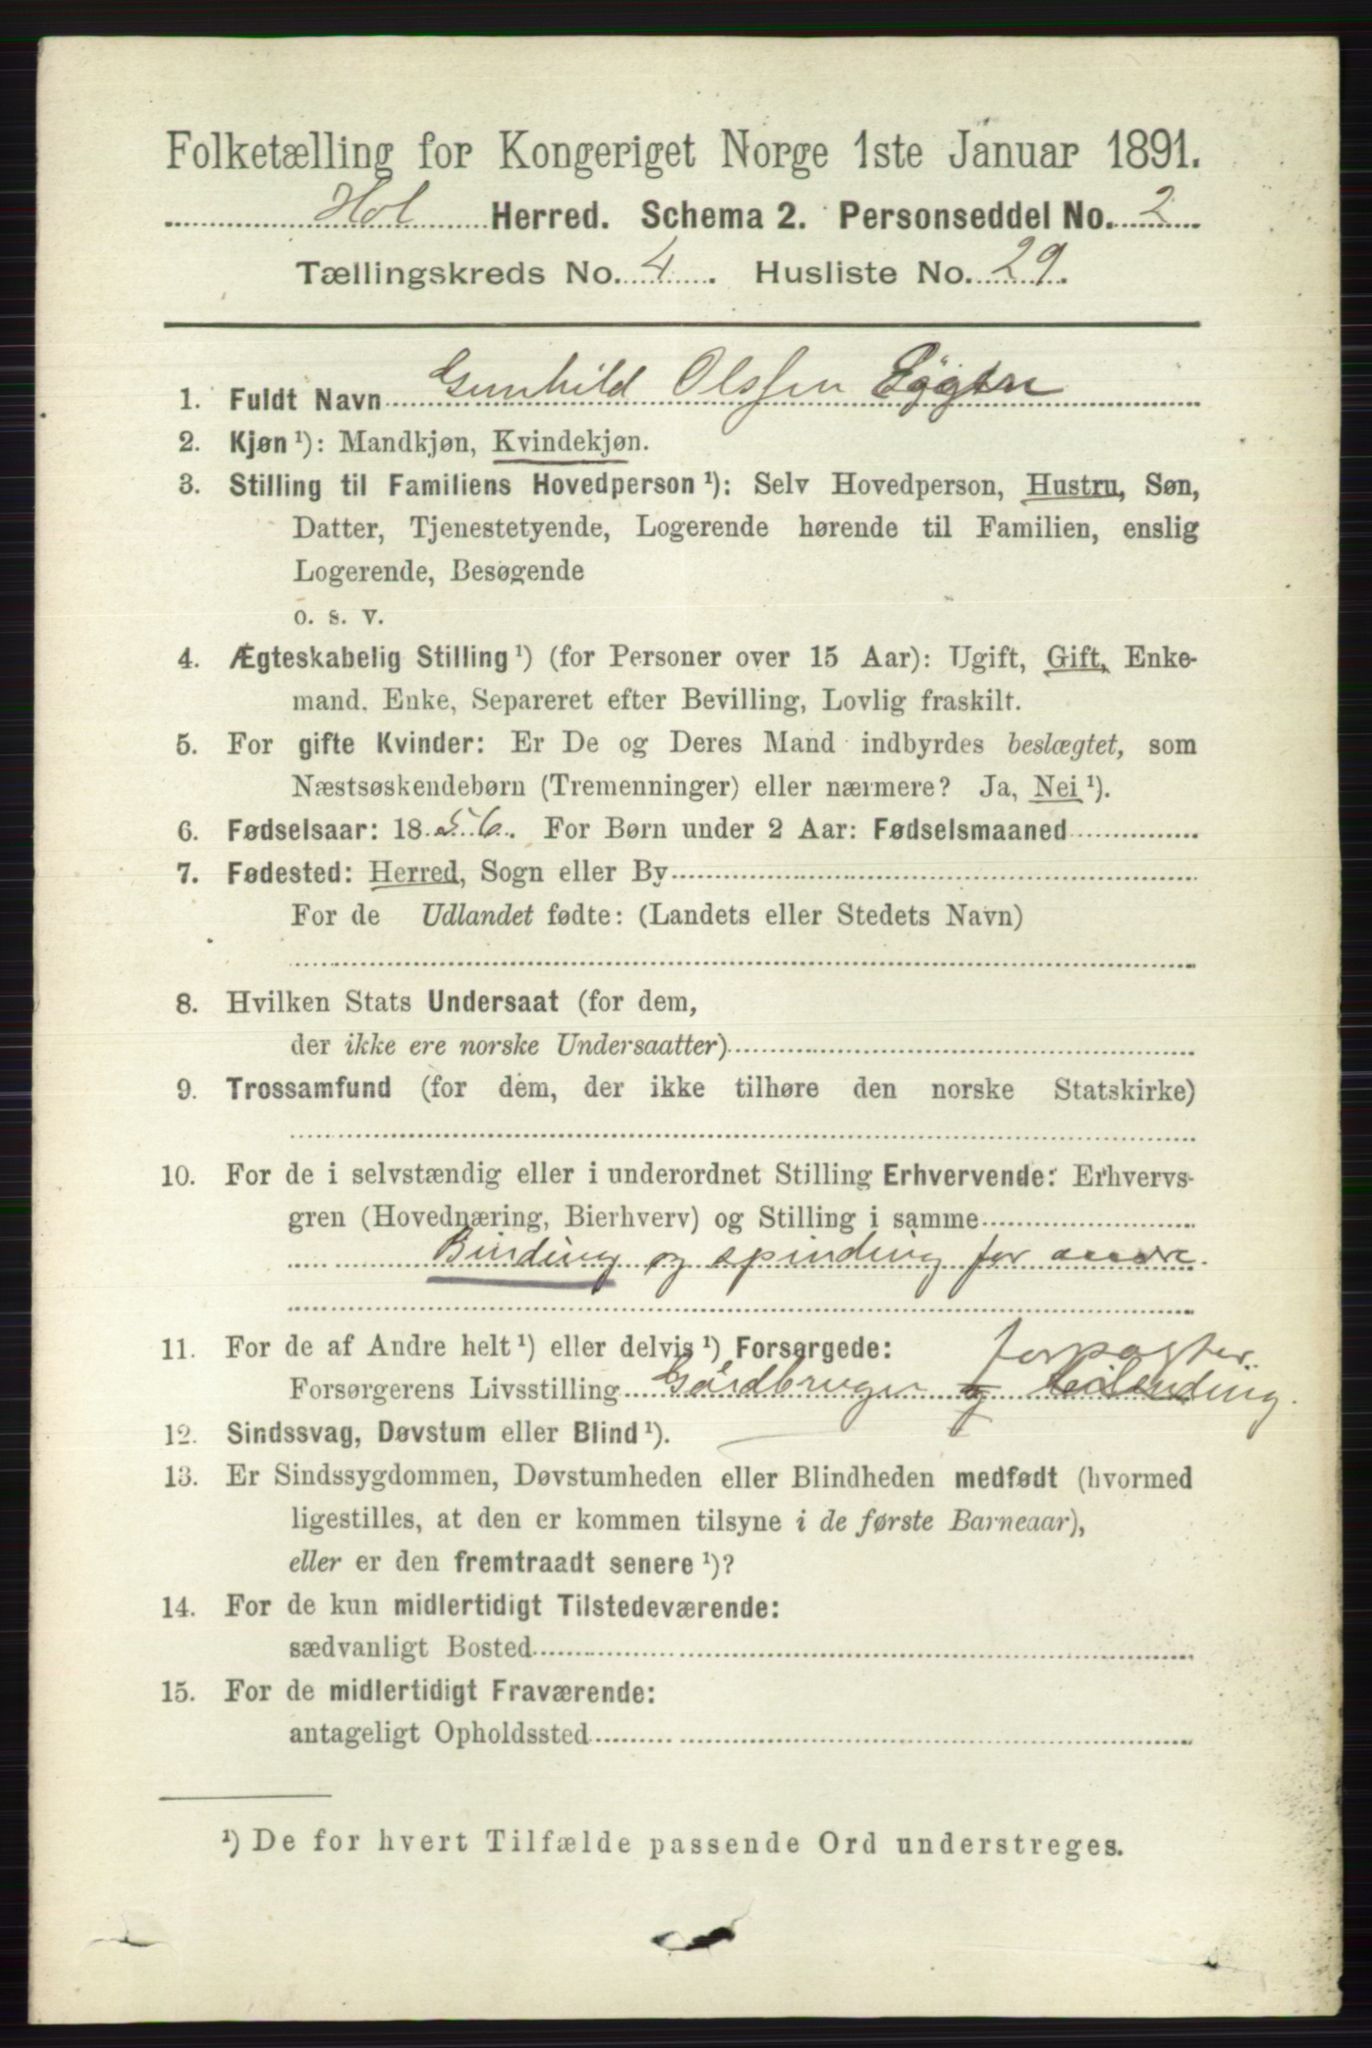 Folketælling for Kongeriget Norge 1ste Januar 1891.
Hol Herred. Schema 2. Personseddel No. 2
Tællingskreds No. 4. Husliste No. 29.
1. Fuldt Navn Gunhild Olssen
2. Kjøn¹): Mandkjøn, Kvindekjøn.
3. Stilling til Familiens Hovedperson¹): Selv Hovedperson, Hustru, Søn,
Datter, Tjenestetyende, Logerende hørende til Familien, enslig
Logerende, Besøgende
o. s. v.
4. Ægteskabelig Stilling¹) (for Personer over 15 Aar): Ugift, Gift, Enke-
mand, Enke, Separeret efter Bevilling, Lovlig fraskilt.
5. For gifte Kvinder: Er De og Deres Mand indbyrdes beslægtet, som
Næstsøskendebørn (Tremenninger) eller nærmere? Ja, Nei¹).
6. Fødselsaar: 1856. For Børn under 2 Aar: Fødselsmaaned
7. Fødested: Herred, Sogn eller By
For de Udlandet fødte: (Landets eller Stedets Navn)
8. Hvilken Stats Undersaat (for dem,
der ikke ere norske Undersaatter)
9. Trossamfund (for dem, der ikke tilhøre den norske Statskirke)
10. For de i selvstændig eller i underordnet Stilling Erhvervende: Erhvervs-
gren (Hovednæring, Bierhverv) og Stilling i samme
Binding og spinding for andre.
11. For de af Andre helt¹) eller delvis¹) Forsørgede: forpagter.
Forsørgerens Livsstilling Gårdbruger og
12. Sindssvag, Døvstum eller Blind¹).
13. Er Sindssygdommen, Døvstumheden eller Blindheden medfødt (hvormed
ligestilles, at den er kommen tilsyne i de første Barneaar),
eller er den fremtraadt senere¹)?
14. For de kun midlertidigt Tilstedeværende:
sædvanligt Bosted
15. For de midlertidigt Fraværende:
antageligt Opholdssted
¹) De for hvert Tilfælde passende Ord understreges.